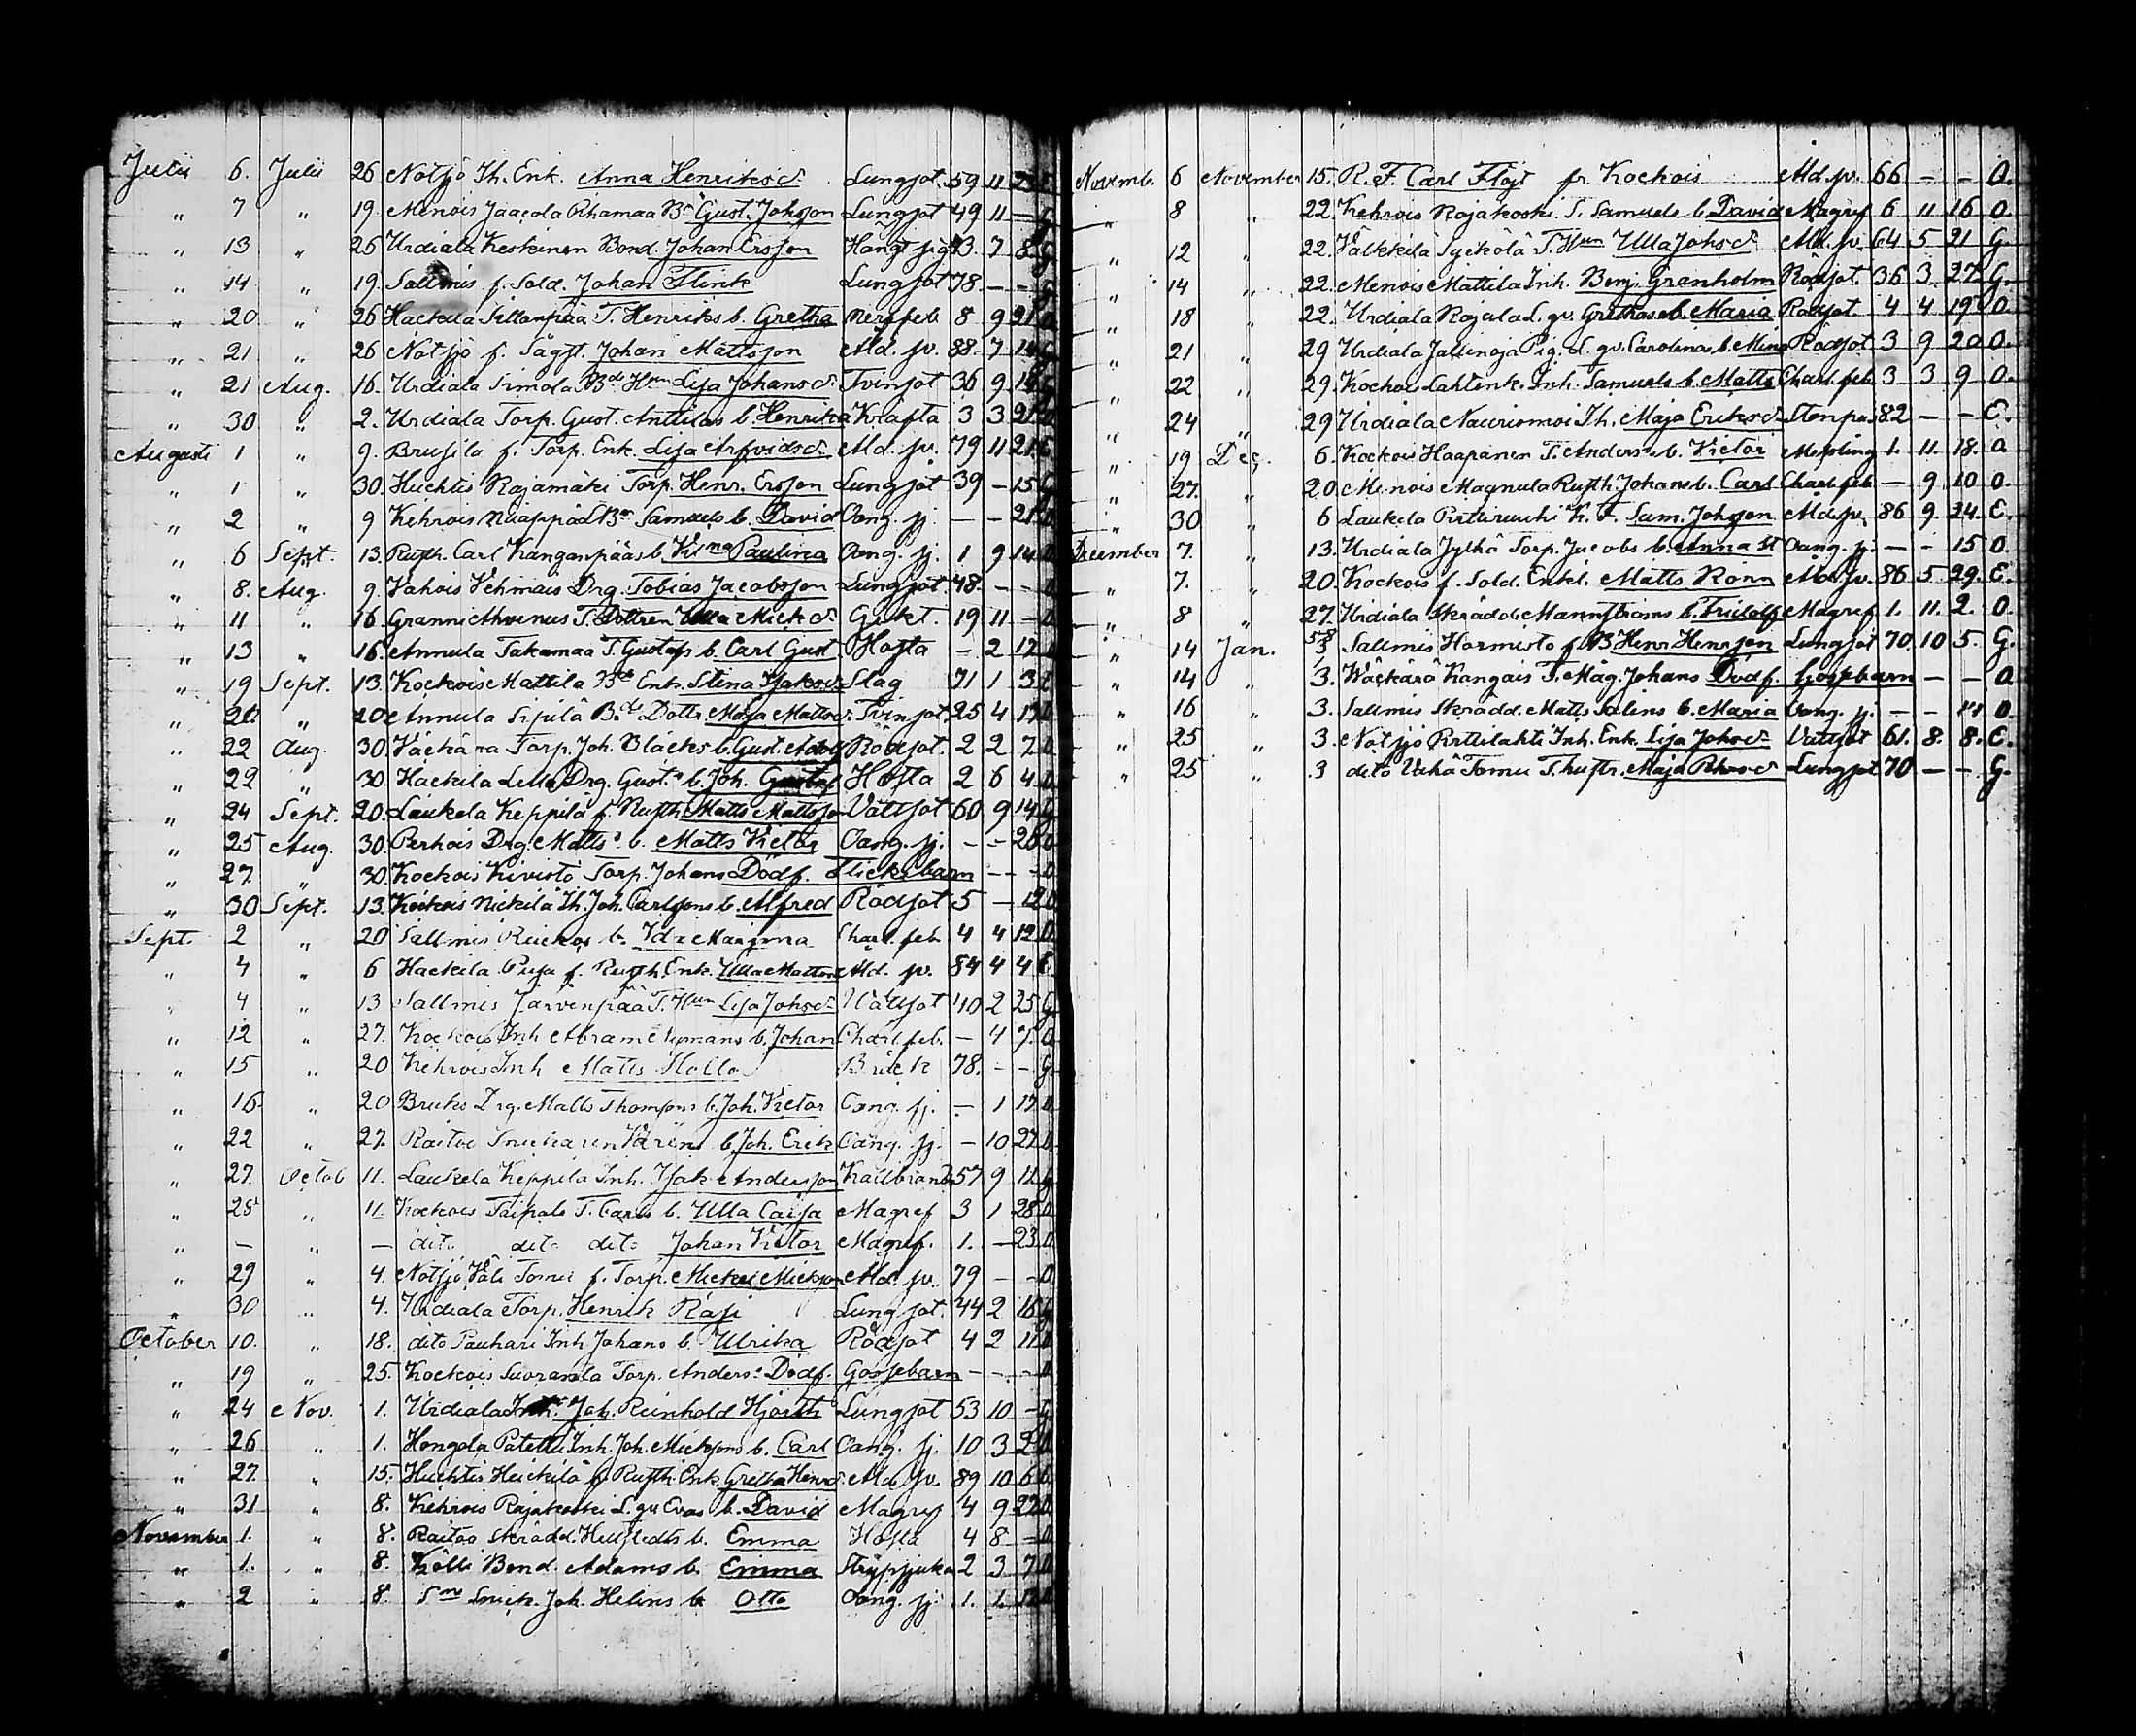 Julii 6. Julii 26 Notsjö Ih. Enk. Anna Henriksdr Lungsot. 59 11 23 E.
" 7 " 19. Menois Jaacola Rhamaa Bn Gust. Johsson Lungsot 49 11 — G
" 13 " 26 Urdiala Keskeinen Bond. Johan Ersson Håll 7 8 G
" 14 " 19. Sallmis f. Sold. Johan Flink Lungsot 78. — — G
" 20 " 26 Hackila Sillanpää T. Henriks b. Gretha Nerffeb 8 9 21 O
" 21 " 26 Notsjö f. Sågst. Johan Mattsson Åld. sv. 88. 7 14 G
" 21 Aug. 16. Urdiala Simola Bd Hun Lisa Johansdr Tvinsot 36 9 G
" 30 " 2. Urdiala Torp. Gust. Anttilas b. Henrika Kräfta 3 3 21 O
Augusti 1 " 9. Brusila f. Torp. Enk. Lisa Arfvidsdr Åld. sv. 79 11 21 E
" 1 " 30. Huchtis Rajamäki Torp. Henr. Ersson Lungsot 39 — 15 G
" 2 " 9 Kehrois Bn Samuels b. David Oang. sj. — — 21 O
" 6 Sept. 13. Rusth. Carl Kanganpääs b. Vilna Paulina Oang. sj. 1 9 14 O
" 8. Aug. 9. Vahois Vehmais Drg. Tobias Jacobsson Lungsot. 48. — — O
" 11 " 16. Granni Ahvenus T. Dottren Ulla Mickdr Gikt. 19 11 — O
" 13 " 16. Annula Takamaa T. Gustafs b. Carl Gust Hosta — 2 17 O
" 19 Sept. 13. Kockois Mattila Bde Enk. Stina Isaksdr Slag 71 1 3 E
" 20 " 20 Annula Sipilä Bde Dottr. Maja Mattsdr. Tvinsot. 25 4 O
" 22 Aug. 30. Väckärä Torp. Joh. Bläcks b. Gust. Adolf Rödsot. 2 2 7 O
" 22 " 30. Hackila Lella Drg. Gusts b. Joh. Gustaf Hosta 2 6 4 O
" 24 Sept. 20. Laukela Keppilä f. Rusth Matts Mattsson Vattsot 60 9 14 G
" 25 Aug. 30. Perhois Drg. Matts b. Matts Victor Oang. sj. — — 28 O
" 27. " 30. Kockois Kivistö Torp. Johans Dödf. Flickebarn — — O
" 30 Sept. 13. Kockois Nickilä Ih. Joh. Carlssons b. Alfred Rödsot 5 — 12 O
Sept. 2 " 20 Sallmis b. Ida Charl. feb. 4 4 12 O.
" 4 " 6 Hackila Puja f. Rusth. Enk. Ulla Mattsdr Åld. sv. 84 4 4 E.
" 4 " 13 Sallmis Järvenpää T. Hun Lisa Johsdr Vattsot 40 2 25 G
" 12 " 27. Kockois Inh Abram Nymans b. Johan Charl. feb. — 4 7. O
" 15 " 20 Kehrois Inh Matts Hollo Bråck 78. — — G.
" 16 " 20 Bruks Drg. Matts Thomssons b. Joh. Victor Oang. sj. — 1 17 O.
" 22 " 27. Raitoo b. Joh. Erik Oang. sj. — 10 27 O.
" 27. Octob 11. Laukela Keppilä Inh. Isak Andersson Kallbrand 57 9 11 G
" 28 " 11. Kockois Taipale T. Carls b. Ulla Caisa Magref 3 1 28 O
" — " — dito dito dito Johan Victor Magref. 1. — 23 O
" 29 " 4. Notsjö f. Torp. Mickel Micksson Åld. sv. 79 — — O
" 30 " 4. Urdiala Torp. Henrik Rasi Lungsot. 44 2 16 G
October 10. " 18. dito Pauhari Inh Johans b. Ulrika Rödsot 4 2 11 O
" 19 " 25. Kockois Torp. Anders Dödf. Gossebarn — — — O
" 24 Nov. 1. Urdiala Inh. Joh. Reinhold Hjorth Lungsot 53 10 — G
" 26 " 1. Hongola Inh. Joh. Micksons b. Carl Oang. sj. 10 3 2 O
" 27. " 15. Huchtis Heickilä f. Rusth. Enk. Gretha Henrdr. Åld. sv. 89 10 6 E
" 31 " 8. Kehrois Rajakoski L. qv. Evas b. David Magref 4 9 22 O.
November 1. " 8. Raitoo Skrädd. Hellstedts b. Emma Hosta 4 8 — O
" 1. " 8. Kölli Bond. Adams b. Emma Strypsjuka 2 3 7 O
" 2 " 8. Smed. Joh. Helins b Otto Oang. sj. 1. 1. O
Novemb. 6 November 15. R. F. Carl Flöjt fr. Kockois Åld. sv. 66 — — O.
" 8 " 22. Kehrois Rajakoski T. Samuels b. David Magref 6 11 16 O.
" 12 " 22. Välkkilä Syckölä T. Hun Ulla Johsdr Åld. sv. 64 5 21 G.
" 14 " 22. Menois Mattila Inh. Benj. Granholm Rödsot. 36 3. 27. G.
" 18 " 22. Urdiala Rajala L. qv. Grethas b. Maria Rödsot. 4 4 19 O.
" 21 " 29 Urdiala Jallinoja Pig. L. qv. Carolinas b. Mina Rödsot 3 9 20 O.
" 22 " 29. Kockois Inh. Samuels b. Matts Charl. feb. 3 3 9 O.
" 24 " 29 Urdiala Ih. Maja Eriksdr Stenpas 82 — — E.
" 19 Dec. 6. Kockois Haapanen T. Anders b. Victor Messling 1. 11. 18. O
" 27 " 20. Menois Magnula Rusth. Johans b. Carl Charl. feb. — 9 10 O.
" 30 " 6 Laukela R. F. Sam. Johsson Åld. sv. 86 9. 24. E.
December 7. " 13. Urdiala Jylhä Torp. Jacobs b. Anna St Oang. sj. — — 15 O.
" 7. " 20. Kockois f. Sold. Enkl. Matts Rönn Åld. sv. 86 5 29. E.
" 8 " 27. Urdiala Skrädd. Mannströms b. Fridolf Magref 1. 11. 2. O.
" 14 Jan. 58 3 Sallmis Harmisto f. B. Henr Henrsson Lungsot 70. 10 5. G.
" 14 " 3. Wäckärä Kangais T. Måg. Johans Dödf. Gossebarn — — O.
" 16 " 3. Sallmis Skrädd. Matts Salins b. Maria Oang. sj. — — 14 O.
" 25 " 3. Notsjö Pirttilahti Inh. Enk. Lisa Johsdr Vattsot 61. 8. 8. E.
" 25 " 3 dito Vähä Tomu T. hustr. Maja Lungsot 70 — — G.